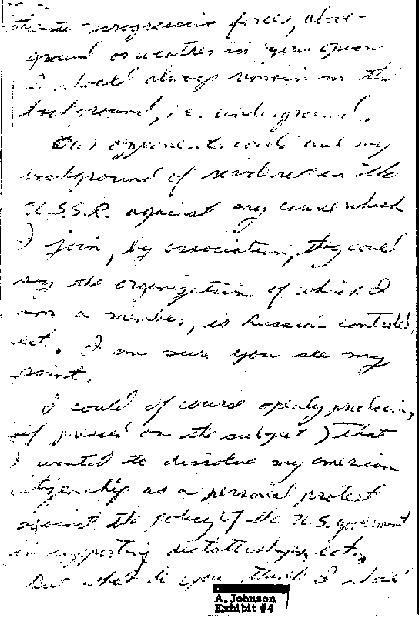 these progressive forces, above-
ground or whether in your opinion
I should always remain in the
background, i.e. under-ground.
Our opponents could use my
background of residence in the
U.S.S.R. against any cause which
I join, by association, they could
say the organization of which I
am a member, is Russian controled,
ect. I am sure you see my
point.
I could of course openly proclaim,
if pressed on the subject) that
I wanted to dissolve my american
citizenship as a personal protest
against the policy of the U.S. goverment
in supporting dictatorships, ect,
But what do you think I should
A. Johnson
Exhibit #4